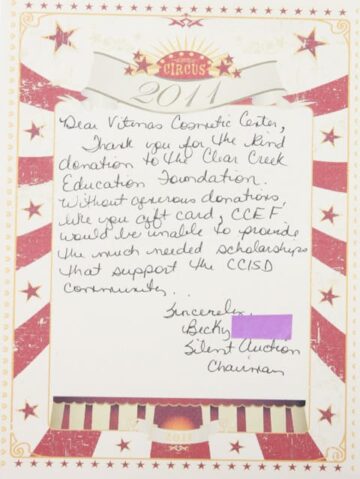 CIRCUS
2011
Dear Vitenas Cosmetic Center,
Thank you for the kind
donation to the Clear Creek
Education Foundation.
Without generous donations,
like you gift card, CCEF
would be unable to provide
the much needed scholarships
that support the CCISD
community.
Sincerely,
Becky
Silent Auction
Chairman
2011